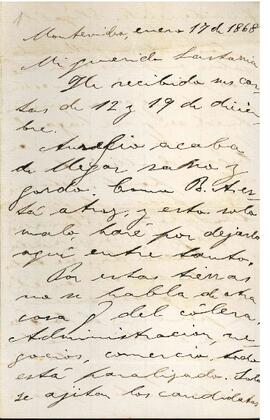 1
Montevideo, enero 17 de 1868
Mi querido Lastarria
He recibido sus car-
tas de 12 y 19 de diciem-
bre.
Aurelio acaba
de llegar sano y
gordo. Como B. A. es-
tá atroz, y esto solo
malo haré por dejarlo
aquí entre tanto.
Por estas tierras
no se habla de otra
cosa q del cólera.
Administracion, ne-
gocios, comercio, todo
está paralizado. Solo
se ajitan los candidatos